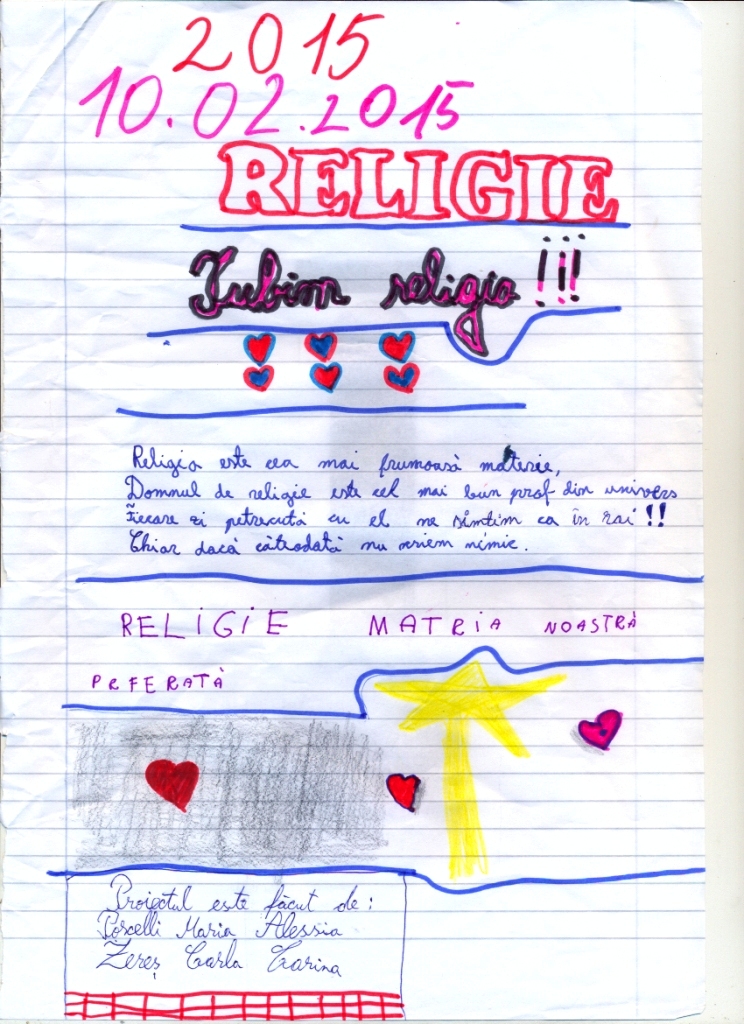 2015
10.02.2015
RELIGIE
Iubim religia !!!
Religia este cea mai frumoasă materie,
Domnul de religie este cel mai bun prof din univers
Fiecare zi petrecută cu el ne simtim ca în rai !!
Chiar dacă câteodată nu scriem nimic.
RELIGIE MATRIA NOASTRĂ
PRFERATĂ
Proiectul este făcut de:
Porcelli Maria Alessia
Zereș Carla Carina